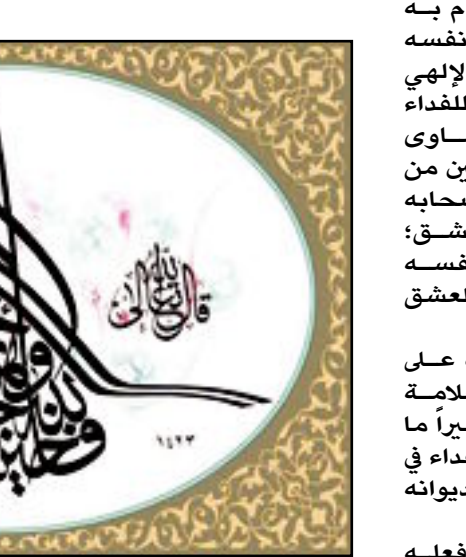 م بــه
نفسه
لإلهي
للفداء
ــاوى
ين من
حابه
شــق؛
فســه
لعشق
عــلى
لامــة
يراً ما
داء في
ديوانه
فعلــه
قال الله تعالى
١٤٢٣